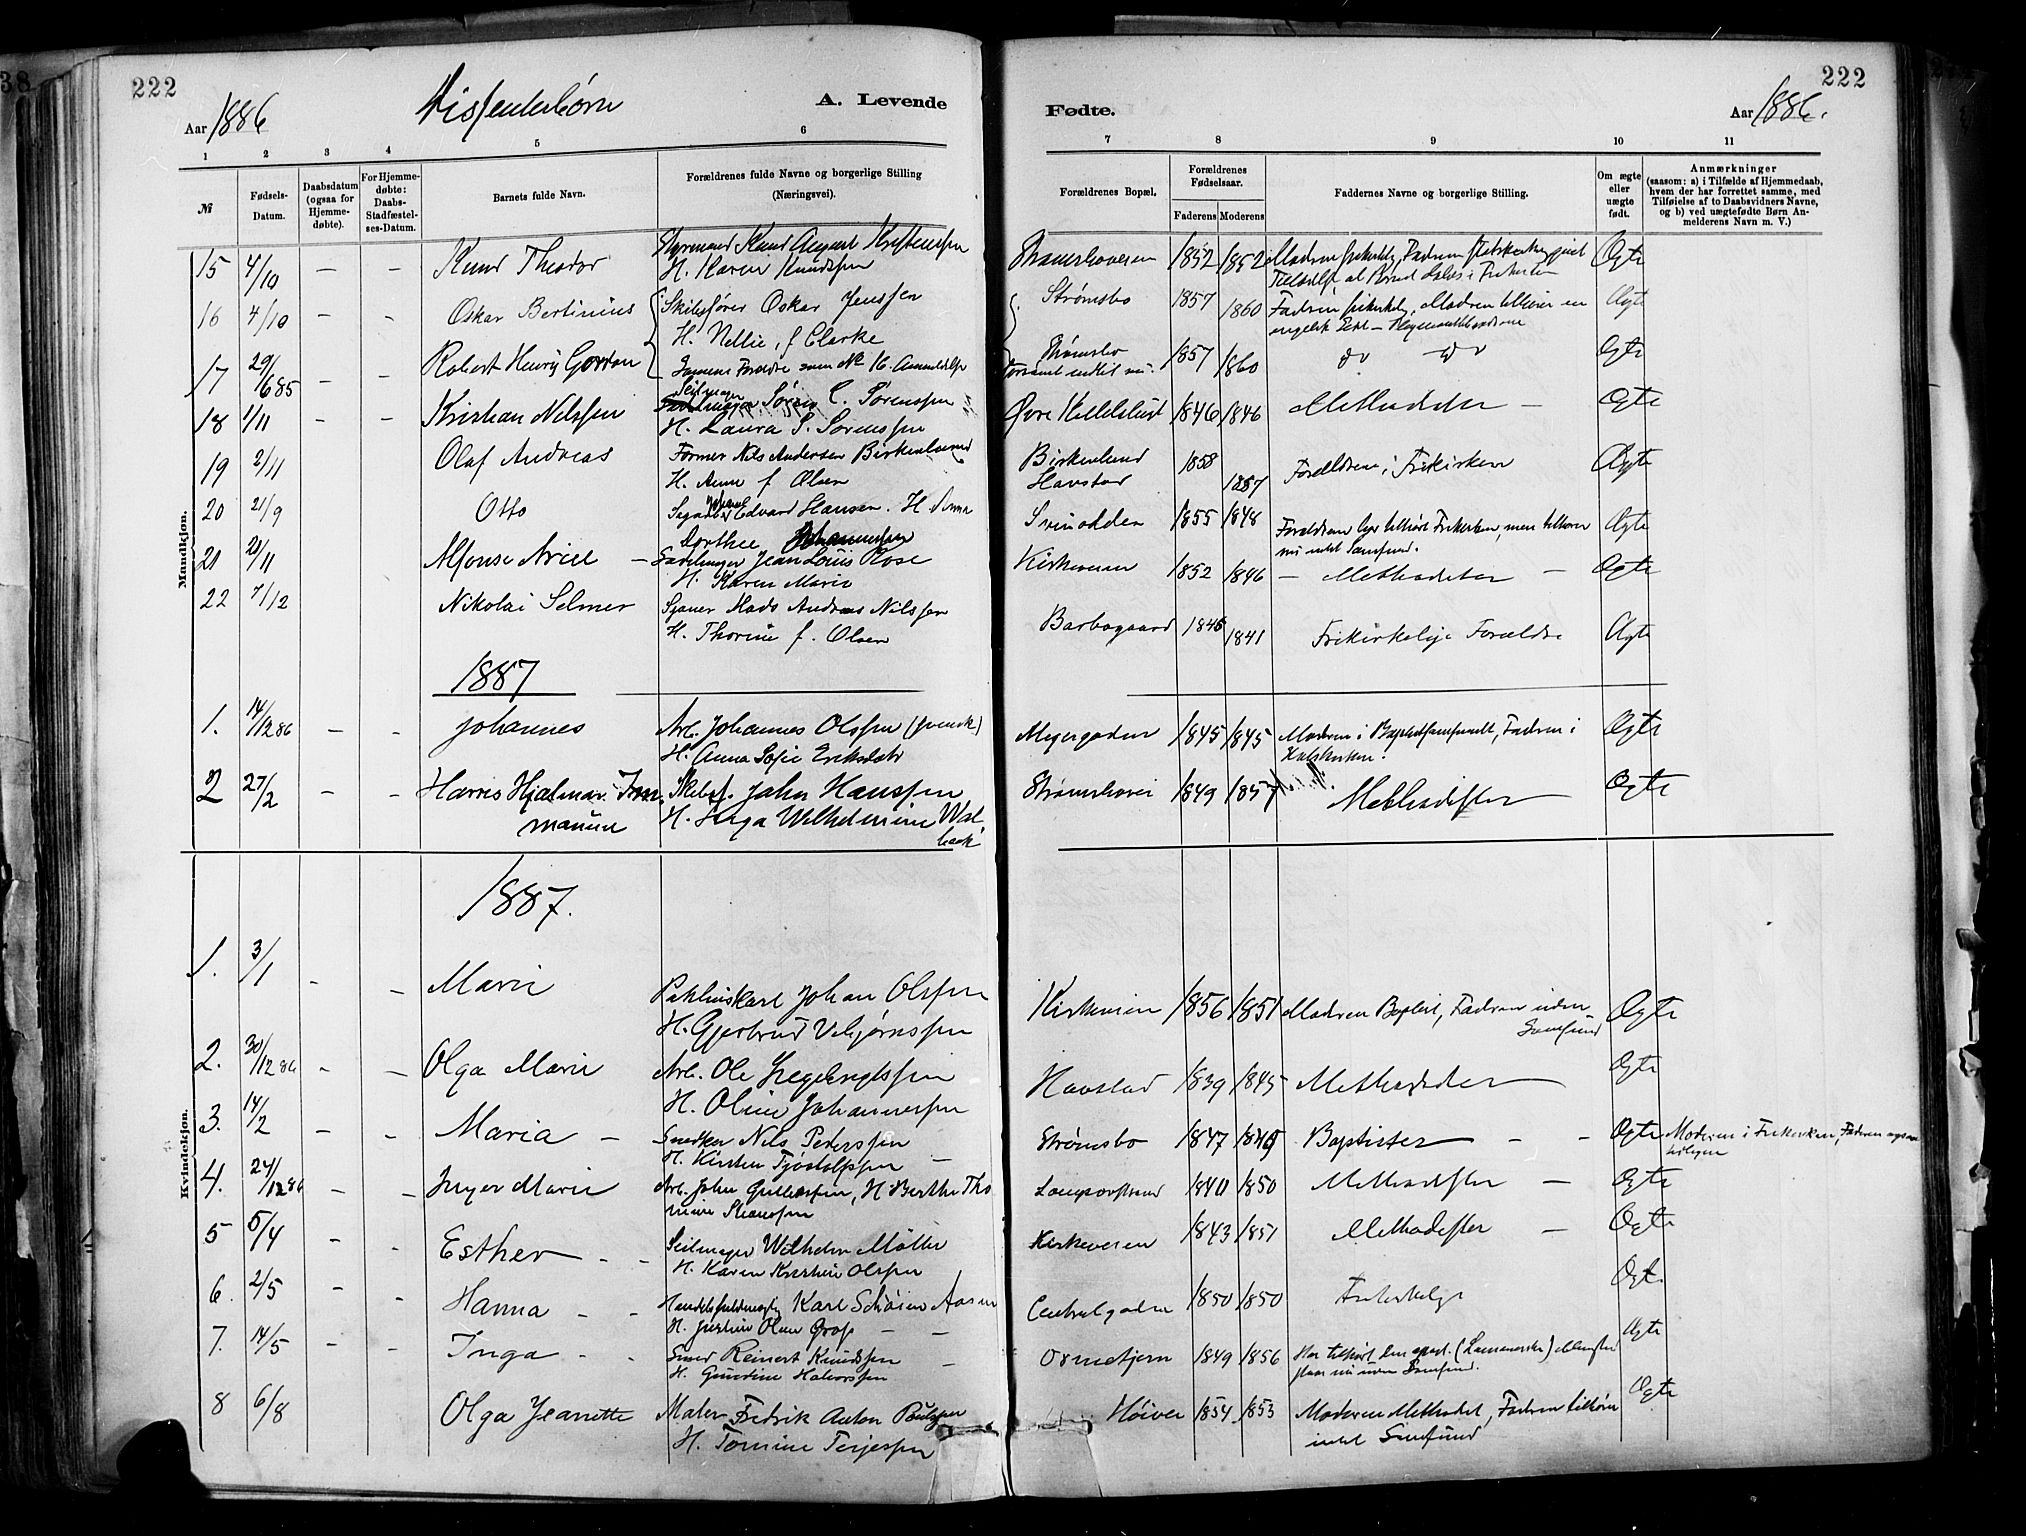 222
Aar 1886
Dissenterbørn
A. Levende
Fødte.
222
Aar 1886.
1 2 3 4 5 6 7 8 9 10 11
№
Fødsels-Datum.
Daabsdatum (ogsaa for Hjemme-døbte).
For Hjemme-døbte: Daabs-Stadfæstel-ses-Datum.
Barnets fulde Navn.
Forældrenes fulde Navne og borgerlige Stilling (Næringsvei).
Forældrenes Bopæl.
Forældrenes Fødselsaar.
Faderens Moderens
Faddernes Navne og borgerlige Stilling.
Om ægte eller uægte født.
Anmærkninger
(saasom: a) i Tilfælde af Hjemmedaab, hvem der har forrettet samme, med Tilføielse af to Daabsvidners Navne, og b) ved uægtefødte Børn An-melderens Navn m. V.)
Mandkjøn.
15 4/10 — — Knud Theodor Styrmand Knud August Kristenssen
H. Karen Knudssen 1852 1852 Ægte
16 4/10 — - Oskar Bertinius Skibsfører Oskar Jenssen
H. Nellie, f Clarke Strømsbo 1857 1860 Fadren frikirkelig, Modren tilhører en
engelsk Sekt — Ægte
17 29/6 85 - - Robert Henry Gordon Samme Forældre som № 16.
Strømsbo 1857 1860 do do Ægte
18 1/11 - - Kristian Nilssen Seilmager Søren C. Sørenssen
H. Laura S. Sørenssen Øvre 1846 1846 Methodister — Ægte
19 2/11 Olaf Andreas Former Nils Andersen Birkenlund
H. Anne f Olsen Birkenlund
Havstad 1858 1857 Forældrene i Frikirken Ægte
20 21/9 Otto Edvard Hansen. H. Anna
Dorthee Johannessen Svinodden 1855 1848 Forældrene har tilhørt Frikirken, men tilhører
nu intet Samfund. Ægte
21 21/11 Alfonse Ariel — Sadelmager Jean Louis Rose
H. Karen Marie Kirkeveien 1852 1846 — Methodister — Ægte
22 7/12 Nikolai Selmer Mads Andreas Nilssen
H. Thorine f. Olsen Barbogaard 1841 Frikirkelige Forældre Ægte
1887
1. 14/12 86 — - Johannes Arb. Johannes Olssen (svensk)
H. Anna Sofie Eriksdatr Meyergaden 1845 1845 Modren i Baptistsamfundet, Fadren i
Statskirken. Ægte
2 27/2 - - Harris Hjalmar Im
manuel Skibsf. John Hanssen
H. Inga Wilhelmine Wal
baek 1849 1857 Methodister Ægte
1887.
Kvindekjøn.
1. 3/1 - - Marie Pakhuskarl Johan Olssen
H. Gjertrud Vebjørnssen Kirkeveien 1856 1851 Modren Baptist, Fadren uden
Samfund Ægte
2. 30/12 86 - - Olga Marie Arb. Ole
H. Oline Johannessen Havstad 1839 1845 Methodister Ægte
3. 14/2 - - Maria — Snedker Nils Pederssen
H. Kirsten Tjøstolfssen Strømsbo 1847 Baptister - - Ægte Moderen i Frikirken, Fadren
4. 24/12 86 - - Inger Marie Arb. John H. Berthe Tho
mine 1840 1850 Methodister — Ægte
5 5/4 - - Esther - - Seilmager Wilhelm Møller
H. Karen Kristine Olssen Kirkeveien 1843 1851 Methodister — Ægte
6. 2/5 - - Hanna - - Handelsfuldmægtig Karl Aasen
H. Centralgaden 1850 1850 Frikirkelige Ægt.
7. 14/5 - - Inga - - Smed Reinert Knudssen —
H. Gunedine Halvorssen Ornetjern 1849 1856 Har tilhørt den apost. Menighed
staar nu uden Samfund. Ægte
8 6/8 Olga Jeanette Maler Fredrik Anton
H. Tomine Terjessen Høiver 1854 1853 Moderen Methodist, Fadren tilhører
intet Samfund Ægte